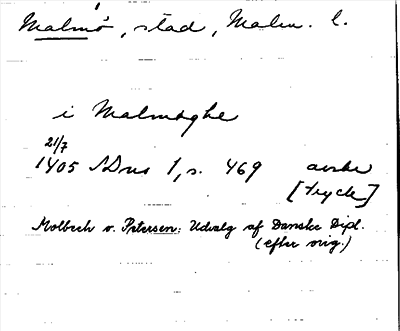 Malmö, stad, Malm. l.
i Malmøghe
21/7
1405 SDns 1, s. 469 avskr
[tryck]
Molbech o. Petersen: Udvalg af Danske Dipl.
(efter orig.)